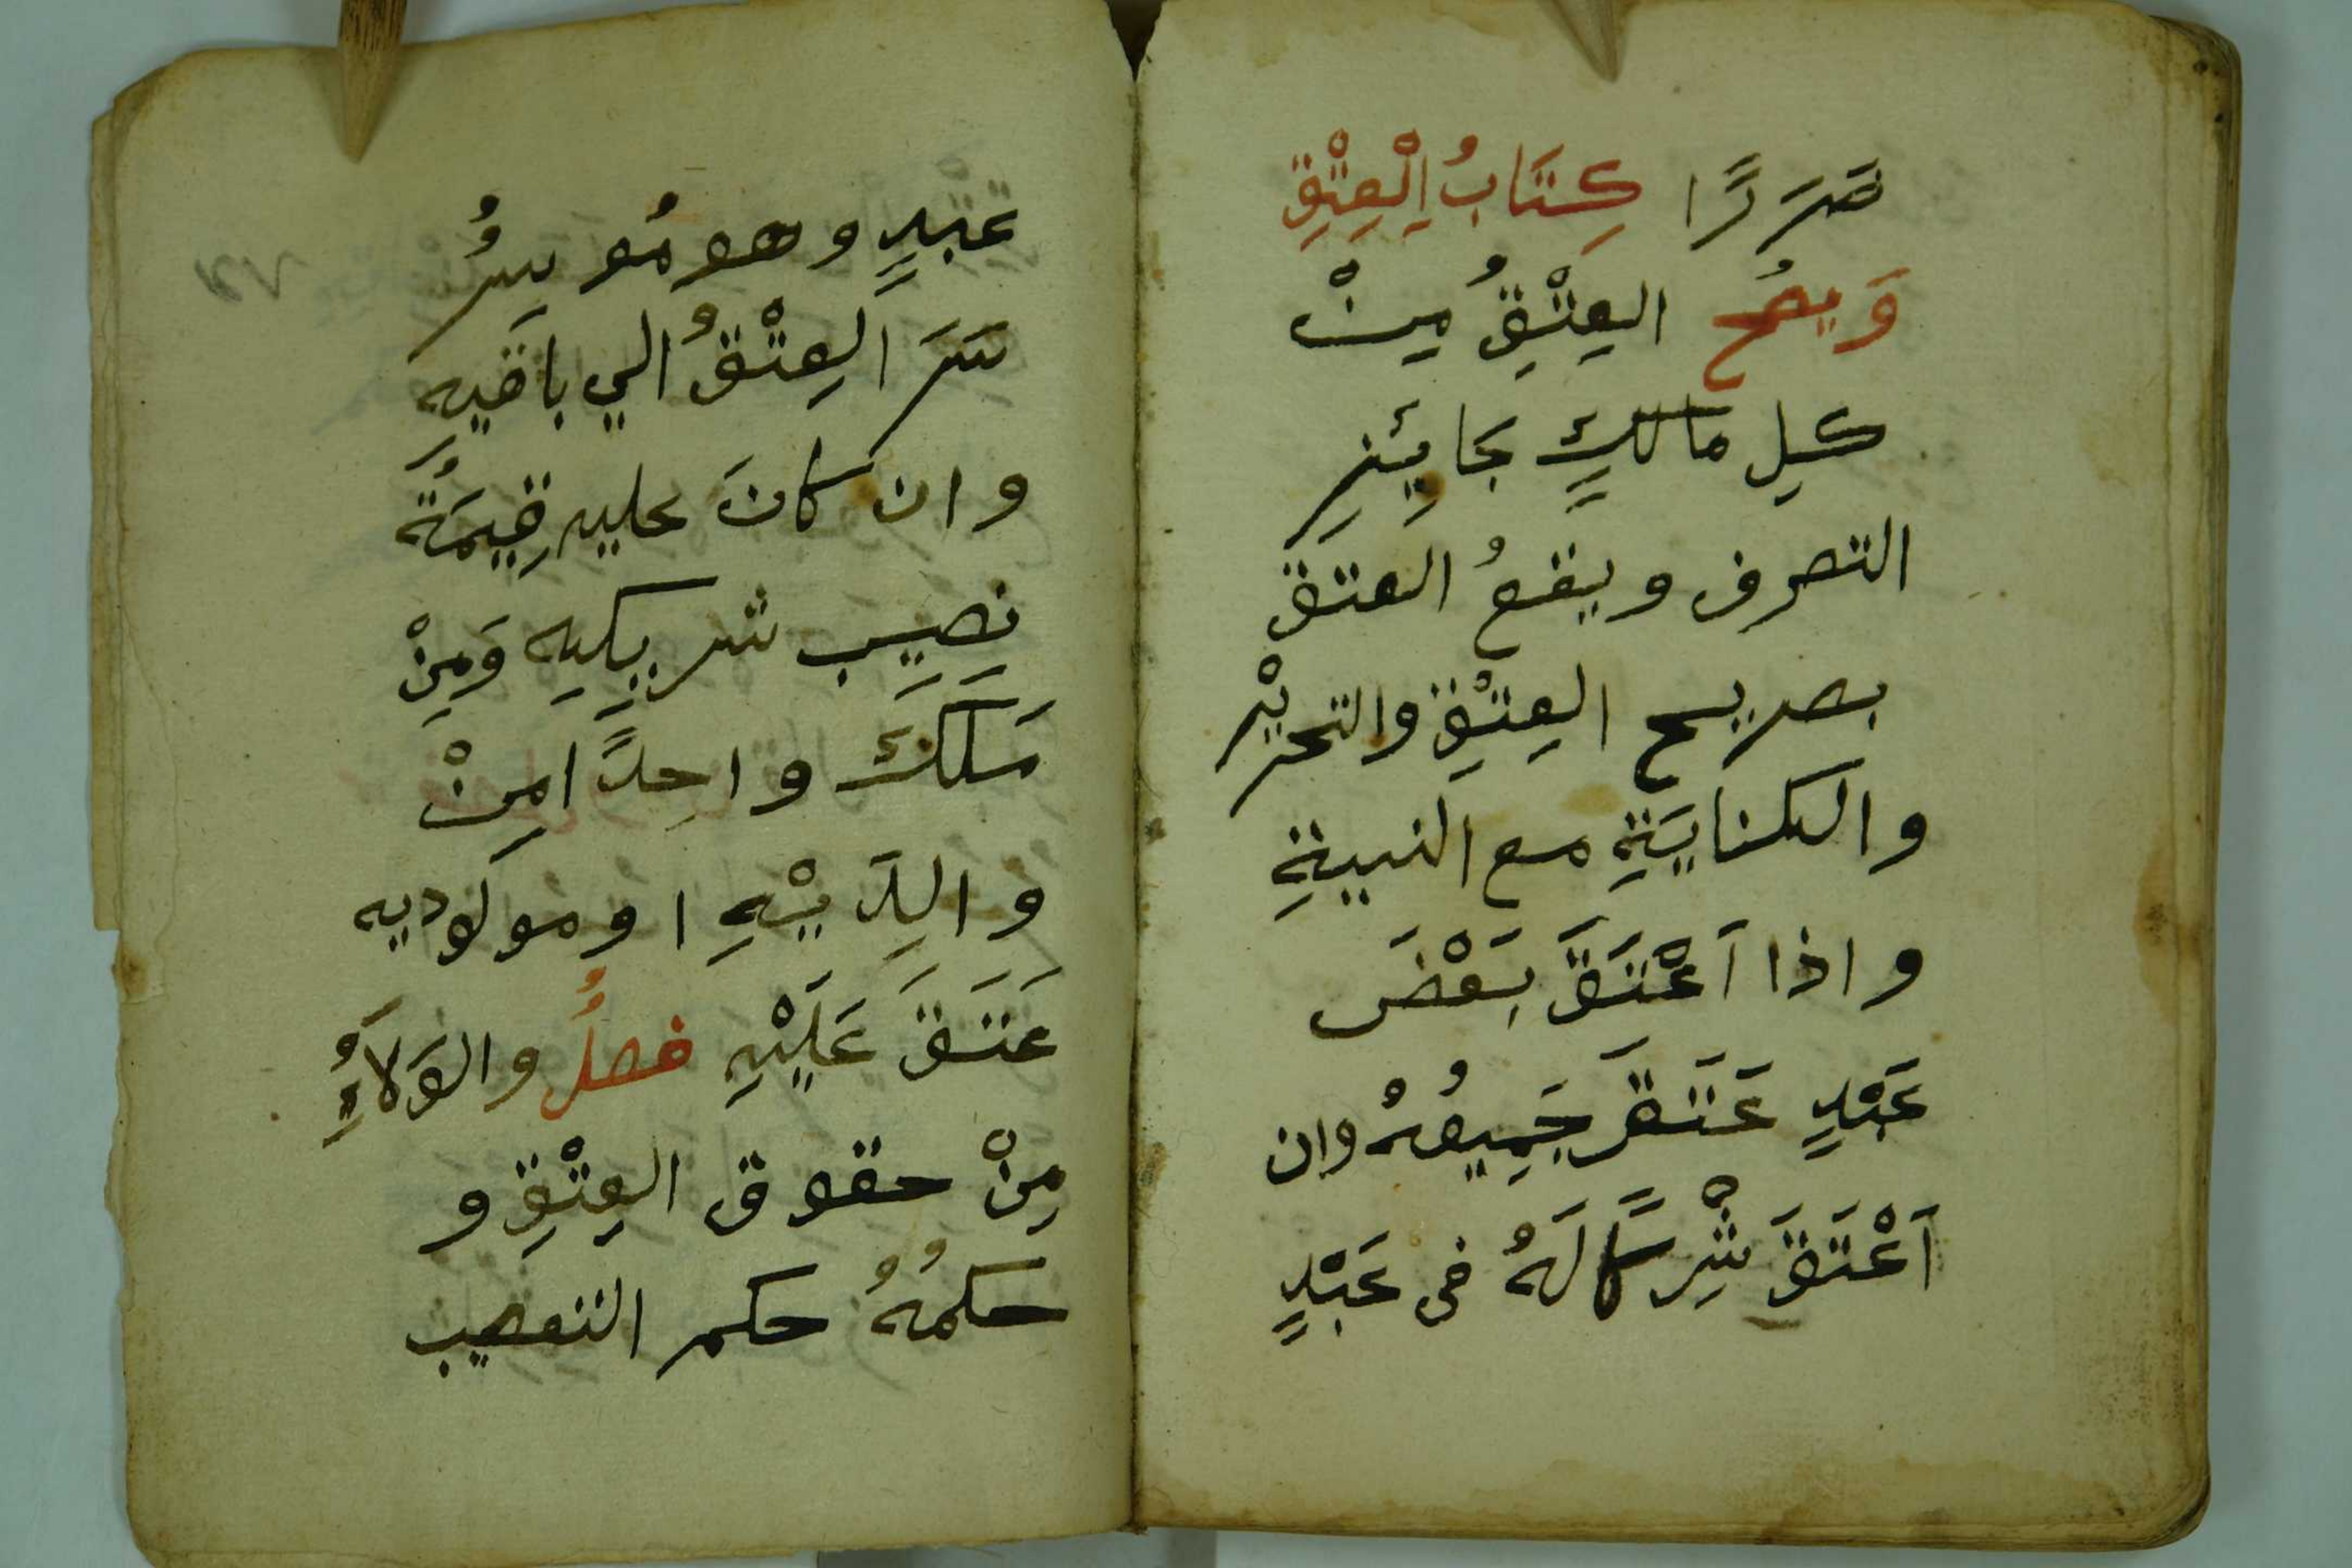 ضَرَرًا كِتَابُ الْعِتْقِ
وَيصُح العِتْقُ مِنْ
كلِ مالكٍ جَايئِزِ
التصرف ويقعُ العتق
بصريح العِتْقِ والتحريْر
والكنايَةِ مع النيةِ
واذا اَعْتَقَ بَعْضَ
عَبْدٍ عَتَقَ جَمِيعُهُ وان
اَعْتَقَ شِرْكًا لَهُ فى عَبْدٍ
عبدٍ وهو مُوسِرُ
سَرَ العِتْقُ الي باقيه
وان كانَ عليهِ قِيمَةُ
نصِيبِ شريكِهِ وَمِنْ
مَلَكَ واحِدًا مِنْ
والِدَيْهِ او مولوديه
عَتَقَ عَلَيْهِ فصلُ والوَلاَءُ
مِنْ حقوق العِتْقِ و
حكمُهُ حكم التعصيب